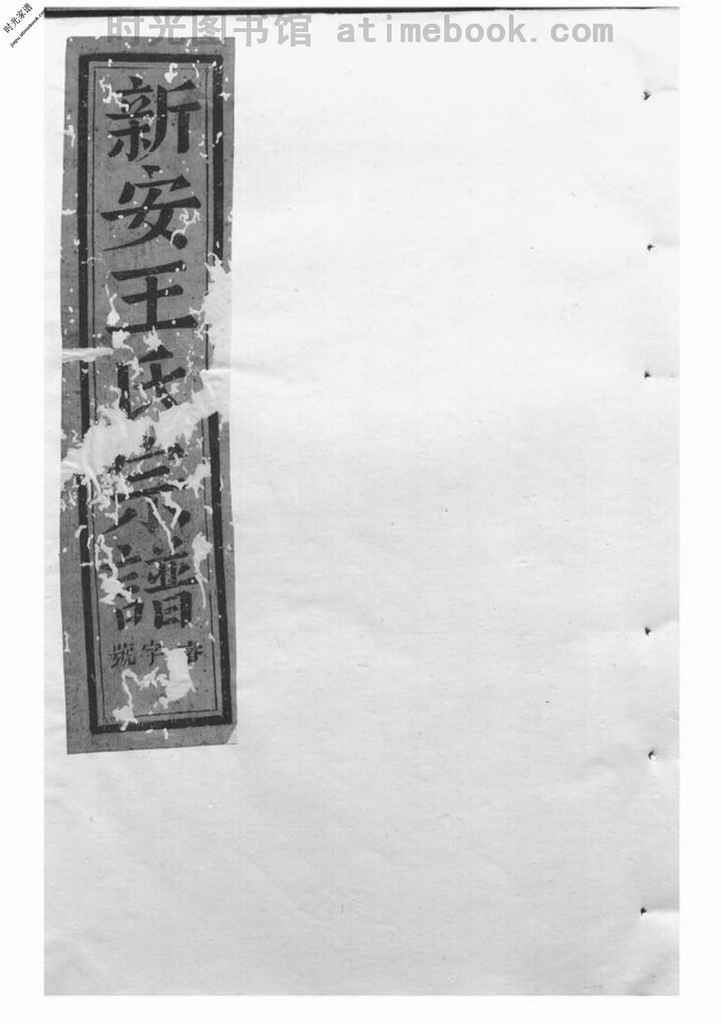 时光图书馆 atimebook.com
时光家谱
新安王氏宗譜
字號